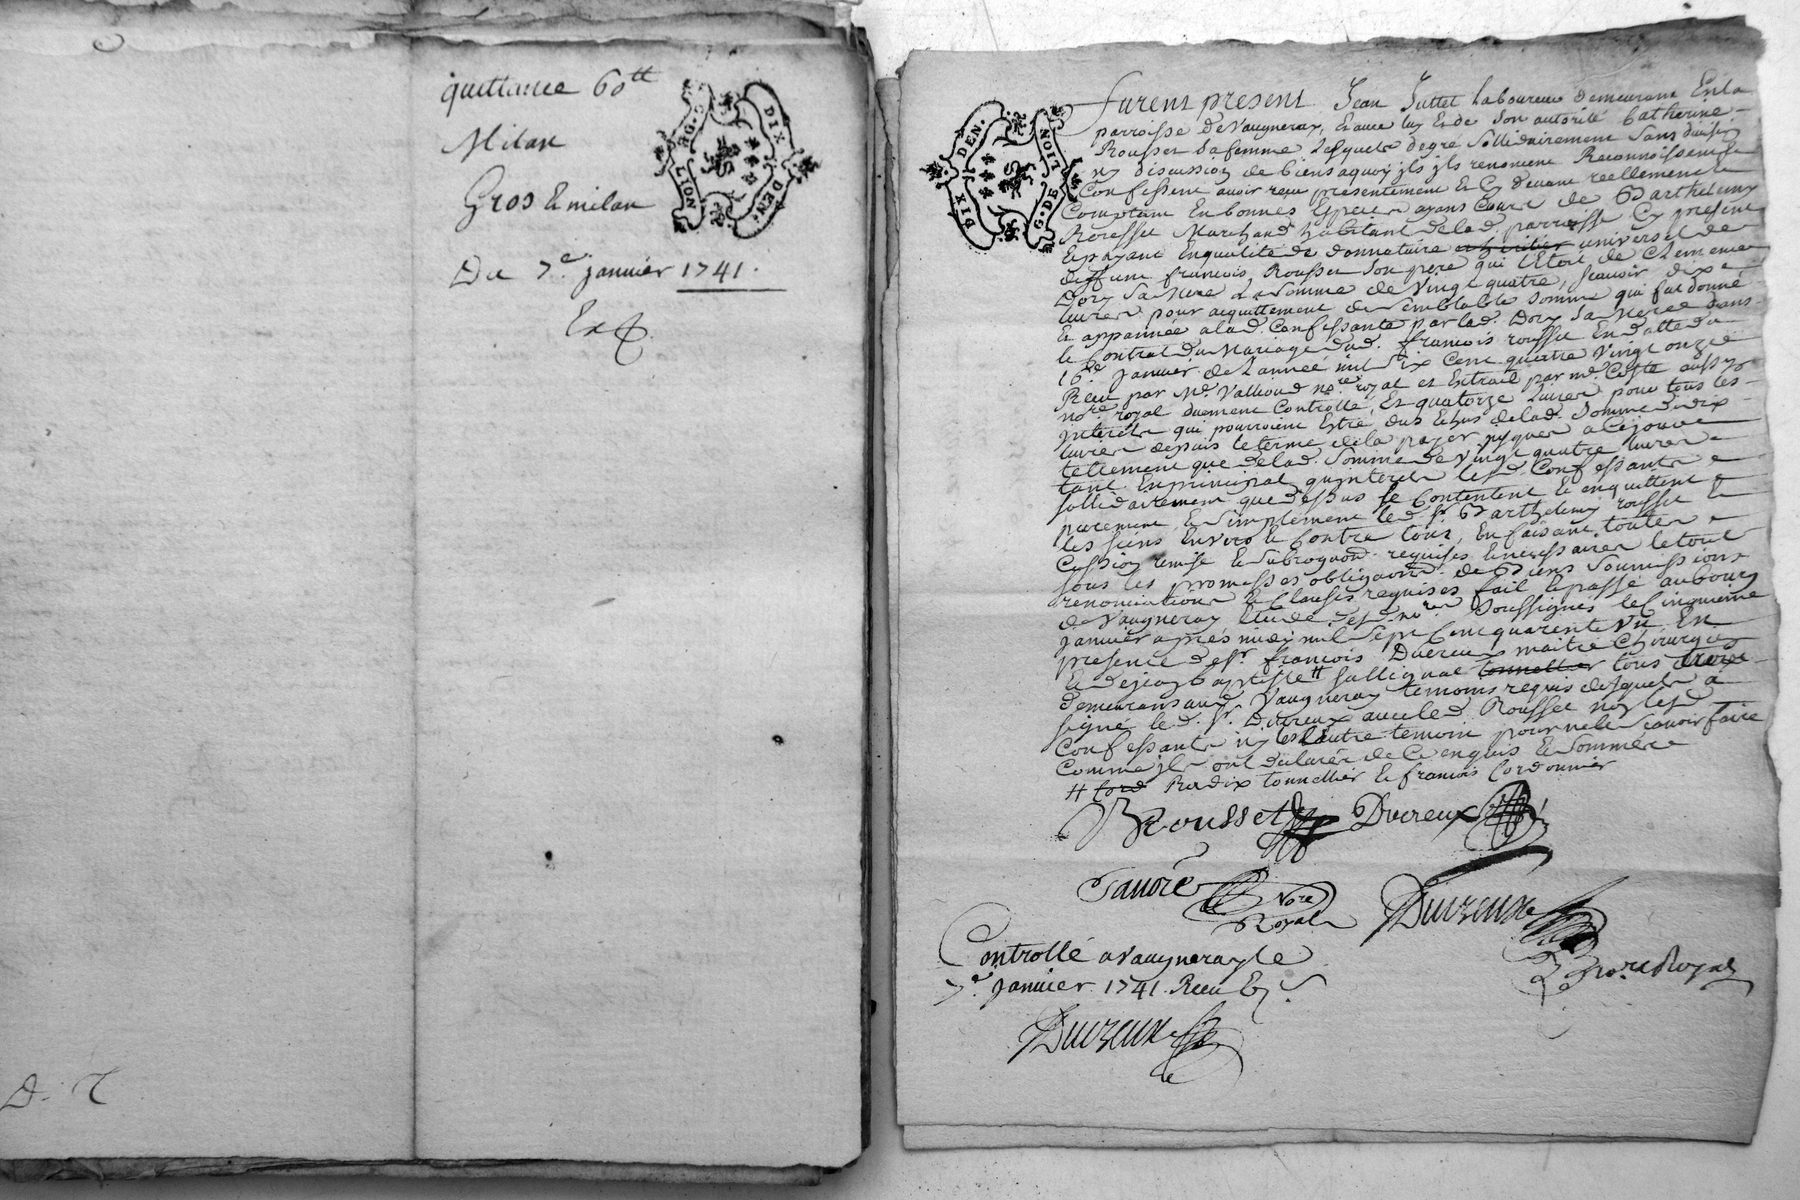 quittance 60tt
Milan
Gros & milan
Du 7e janvier 1741.
Ex
G. DE LION
DIX DEN.
D. T
G. DE LION
DIX DEN.
furent present Jean Juttet Laboureur demeurant En la
parroisse de Vaugneray, Et avec luy Et de son autorité Catherine
Rousset sa femme Lesquels de gré sollidairement sans division
ny discussion de biens a quoy ils renoncent Reconnoissent &
Confessent avoir reçu presentement & Cy devant reellement &
Comptant En bonnes Especes ayans Cours de Barthelemy
Rousset Marchand habitant de lad. parroisse Cy present
& payant En qualité de donnataire et heritier universel de
deffunt francois Rousset son pere qui L'Etoit de Clemence
Dory sa Mere La somme de Vingt quatre, scavoir dix
livres pour acquittement de semblable somme qui fut donné
& appannée a lad. Confessante par lad. Dory sa Mere dans
le Contrat du Mariage dud. francois rousset En datte du
16e Janvier de L'année mil six Cent quatre Vingt onze
Recu par Me Vallioud nore royal et Extrait par me Coste aussy
nore royal duement Controllé, Et quatorze Livres pour tous les
interets qui pourroient Estre dus Echus de lad. somme de dix
livres depuis le terme de la payer jusques a Cejourd'
tellement que de lad. somme de Vingt quatre livres
tant En principal qu'interets lesd. Confessants
sollidairement que dessus se Contentent & en quittent
purement & simplement led. sr Barthelemy rousset &
les siens Envers & Contre tous, En faisant toutes
Cession remise & subrogaon. requises & necessaires le tout
sous les promesses obligaons. de Biens soumissions
renonciations & Clauses requises fait & passé au bourg
de Vaugneray Etude desd. nores soussignés le Cinquieme
Janvier apres midy mil sept Cent quarente Un En
presence de sr. francois Ducreux maitre Chirurgien
& de jean baptiste # sallignat tonnellier tous trois
demeurans aud. Vaugneray temoins requis desquels a
signé le d. sr. Ducreux avec led. Rousset non lesd
Confessants ny l'autre temoin pour ne le scavoir faire
Comme ils ont declaré de Ce enquis & sommés
# Cord Radix tonnellier & francois Cordonnier
B Rousset Ducreux
Nore
Royal Ducreux
nore Royal
Controllé a Vaugneray le
7e Janvier 1741. Recu
Ducreux